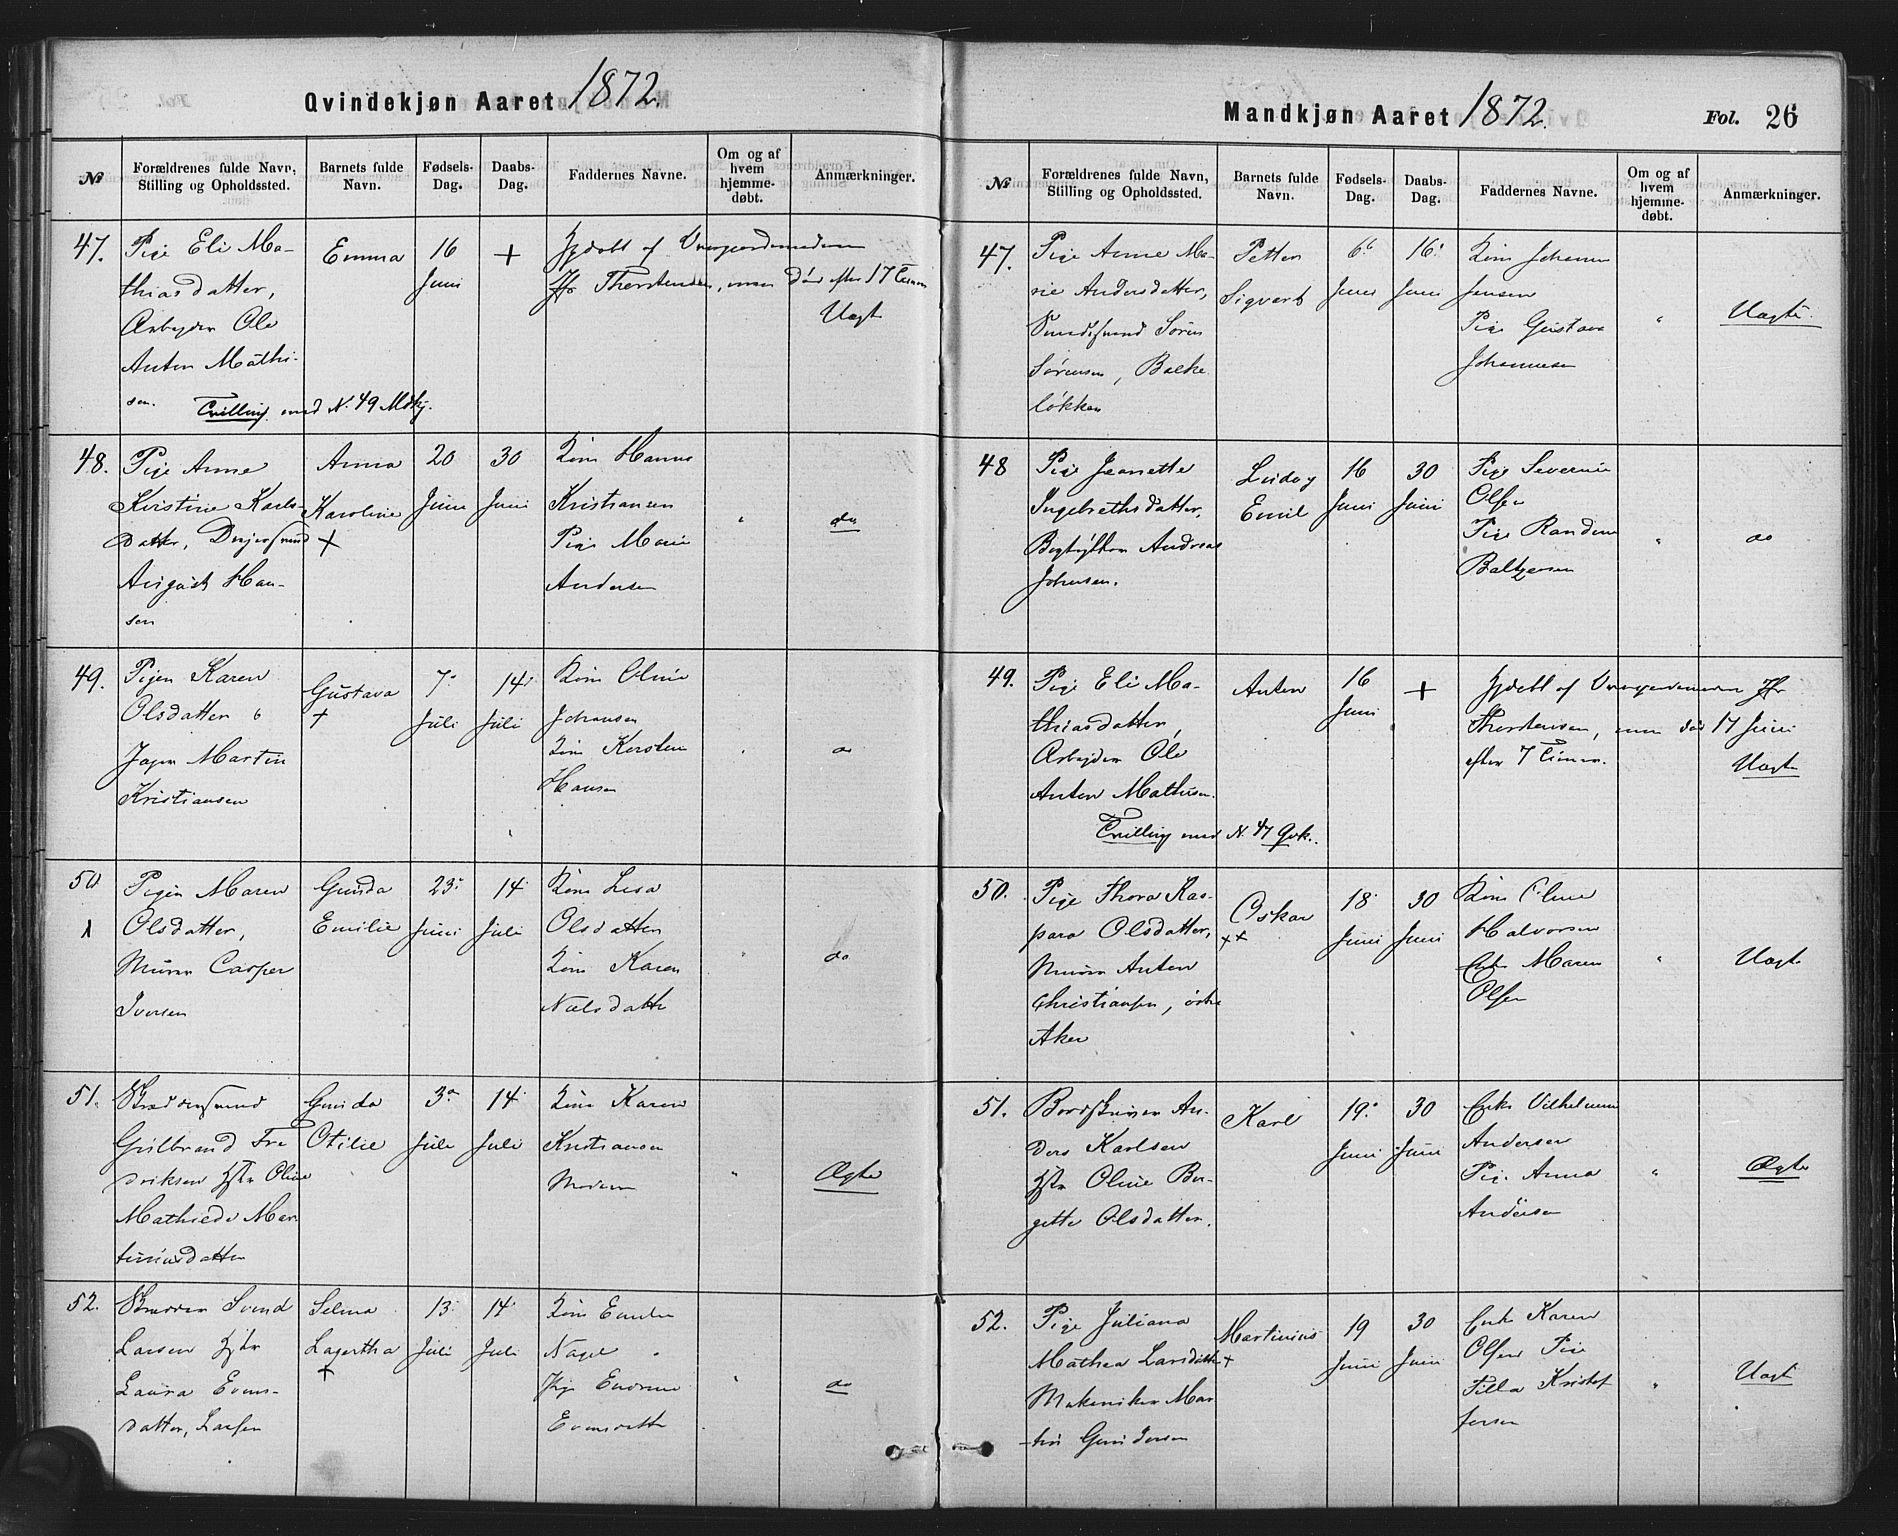 Qvindekjøn Aaret 1872.
No
Forældrenes fulde Navn, Stilling og Opholdssted.
Barnets fulde Navn.
Fødsels-Dag.
Daabs-Dag.
Faddernes Navne.
Om og af hvem hjemme-døbt.
Anmærkninger.
47.
Pige Eli Ma-
thiasdatter,
Arbeider Ole
Anton Mathi-
sen.
Tvilling med N. 49 Mdkj.
Emma
16
Juni
+
Hjdøbt af
Jfr Thorstensen, men død efter 17 Timer
Uægt
48.
Pige Anne
Kristine Karls-
datter,
August Han-
sen
Anna
Karoline
+
20
Juni
30
Juni
Kone Hanna
Kristiansen
Pige Marie
Andersen
"
do
49.
Pigen Karen
Olsdatter
Martin
Kristiansen
Gustava
+
7
Juli
14
Juli
Kone Oline
Johansen
Kone Kersten
Hansen
do
50
Pigen Maren
Olsdatter,
Murer Casper
Iversen
Gunda
Emilie
23
Juni
14
Juli
Kone Lisa
Olsdatter
Kone Karen
Nielsdatter
"
do
51.
Gulbrand Fre
driksen Hstr Oline
Mathilde Mar-
tinusdatter
Gunda
Otilie
3
Juli
14
Juli
Kone Karen
Kristiansen
Moderen
"
Ægte
52.
Skrædder Svend
Larsen Hstr
Laura Evens-
datter, Larsen
Selma
Lagertha
+
13
Juli
14
Juli
Kone
Nagel
Evensdatter
"
do
Mandkjøn Aaret 1872.
Fol. 26
No
Forældrenes fulde Navn, Stilling og Opholdssted.
Barnets fulde Navn.
Fødsels-Dag.
Daabs-Dag.
Faddernes Navne.
Om og af hvem hjemme-døbt.
Anmærkninger.
47.
Pige Anne Ma-
rie Andersdatter,
Smedsvend Søren
Sørensen, Balke
løkken
Petter
Sigvart
6
Juni
16
Juni
Kone Johanne
Jensen
Pige Gustava
Johannesen
"
Uægte
48
Pige Jeanette
Ingebrethsdatter,
Bogtrykker Andreas
Johnsen.
Ludvig
Emil
16
Juni
30
Juni
Pige Severine
Olsen
Pige Randine
Baltzersen
"
do
49.
Pige Eli Ma-
thiasdatter,
Arbeider Ole
Anton Mathisen.
Tvilling med N. 47 Qvk.
Anton
16
Juni
+
Hjdøbt af Jfr
Thorstensen, men død 17 Juni
efter 7 Timer.
Uægte
50.
Pige Thora Kas-
para Olsdatter,
Murer Anton
Christiansen, østre
Aker
Oskar
++
18
Juni
30
Juni
Kone Oline
Halvorsen
Enke Maren
Olsen
"
Uægte
51.
Bordskriver An-
ders Karlsen
Hstr Oline Ber-
gette Olsdatter.
Karl
19
Juni
30
Juni
Enke Vilhelmine
Andersen
Pige Anna
Andersen
"
Ægte
52.
Pige Juliana
Mathea Larsdatter
Mekaniker Mar-
tin Gundersen
Martinius
+
19
Juni
30
Juni
Enke Karen
Olsen Pige
Pilla Kristof
fersen
"
Uægt